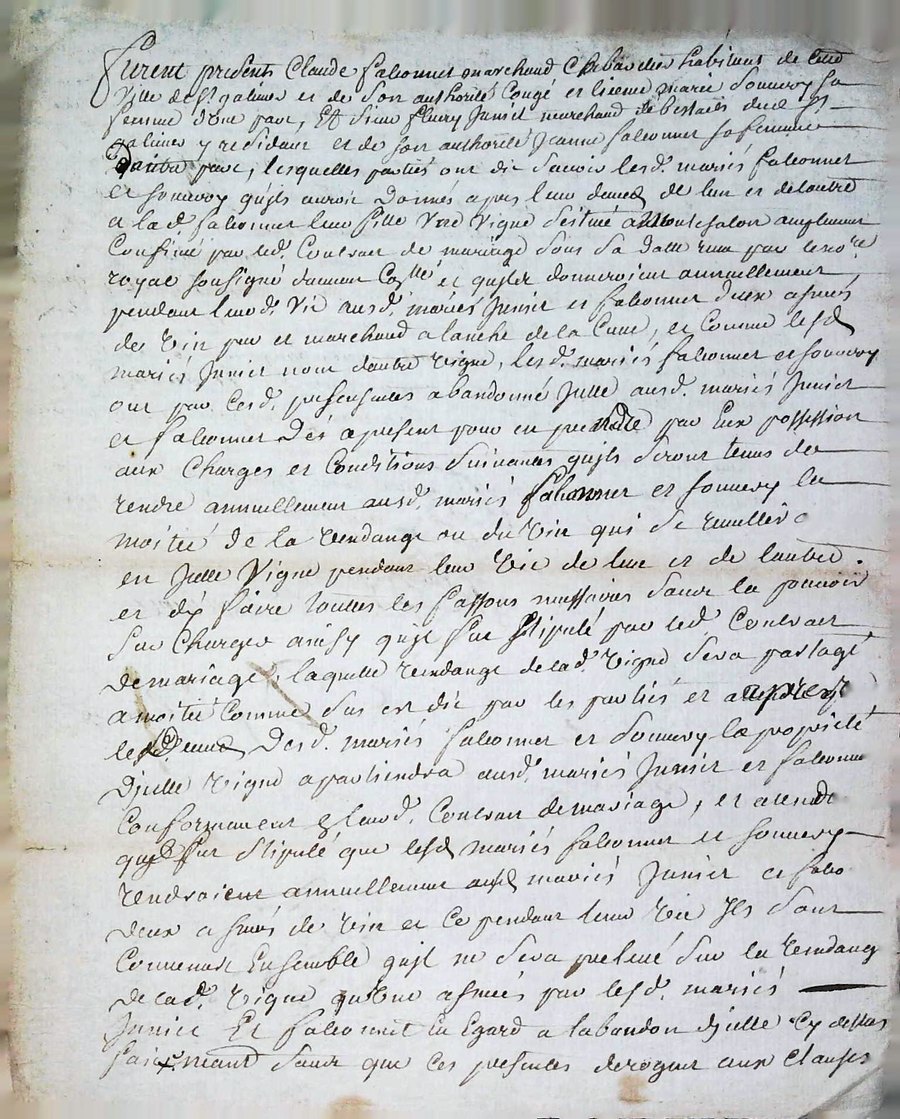 furent presents Claude faconnet marchand habitant de
ville de st galmier et de son authorité Congé et licence marie Souvery sa
femme d'une part, Et sieur fleury Junier marchand de bestiaux dud st
galmier y residant et de son authorité Jeanne faconnet sa femme
dautre part, lesquelles parties ont dit Scavoir lesd. mariés faconnet
et souvery quils auroit Donnés apres leur deces de lun et delautre
a lad. faconnet leur fille Une Vigne Scitué a amplement
Confiné par led. Contrat de mariage Sous Sa datte recu par le no.re
royal soussigné et quils donneroient annuellement
pendant leurd. Vie ausd. mariés Junier et faconnet deux asnés
de vin pur et marchand a lanche de la Cuve, et Comme lesd
mariés Junier nont dautre vigne, lesd. mariés faconnet et souvery
ont par Cesd. presentes abandonné Jcelle ausd. mariés Junier
et faconnet Dés apresent pour en prendre par Eux possession
aux Charges et Conditions Suivantes quils Seront tenus de
rendre annuellement ausd. mariés faconnet et souvery la
moitié de la vendange ou du vin qui Se
en Jcelle Vigne pendant leur vie de lun et de lautre
et dy faire touttes les fassons necessaires Sauf la
Sur Charges ainsy quil fut Stipulé par led. Contrat
de mariage, laquelle vendange de lad. vigne Sera partagé
a moitié Comme Sus est dit par les partiés et apres
le deces Desd. mariés faconnet et Souvery la proprieté
Djcelle vigne apartiendra ausd. mariés Junier et faconnet
Conformement a leurd. Contrat de mariage, et attendu
quil fut Stipulé que lesd mariés faconnet et souvery
rendroient annuellement ausd mariés Junier et faco
deux asnés de vin et Ce pendant leur vie Jls Sont
Convenus Ensemble quil ne Sera prelevé Sur la vendange
de lad. vigne quune asneé par lesd. mariés
Junier Et faconnet En Egard a labandon djcelle Cy dessus
fait, Sans que Ces presentes derogent aux Clauses